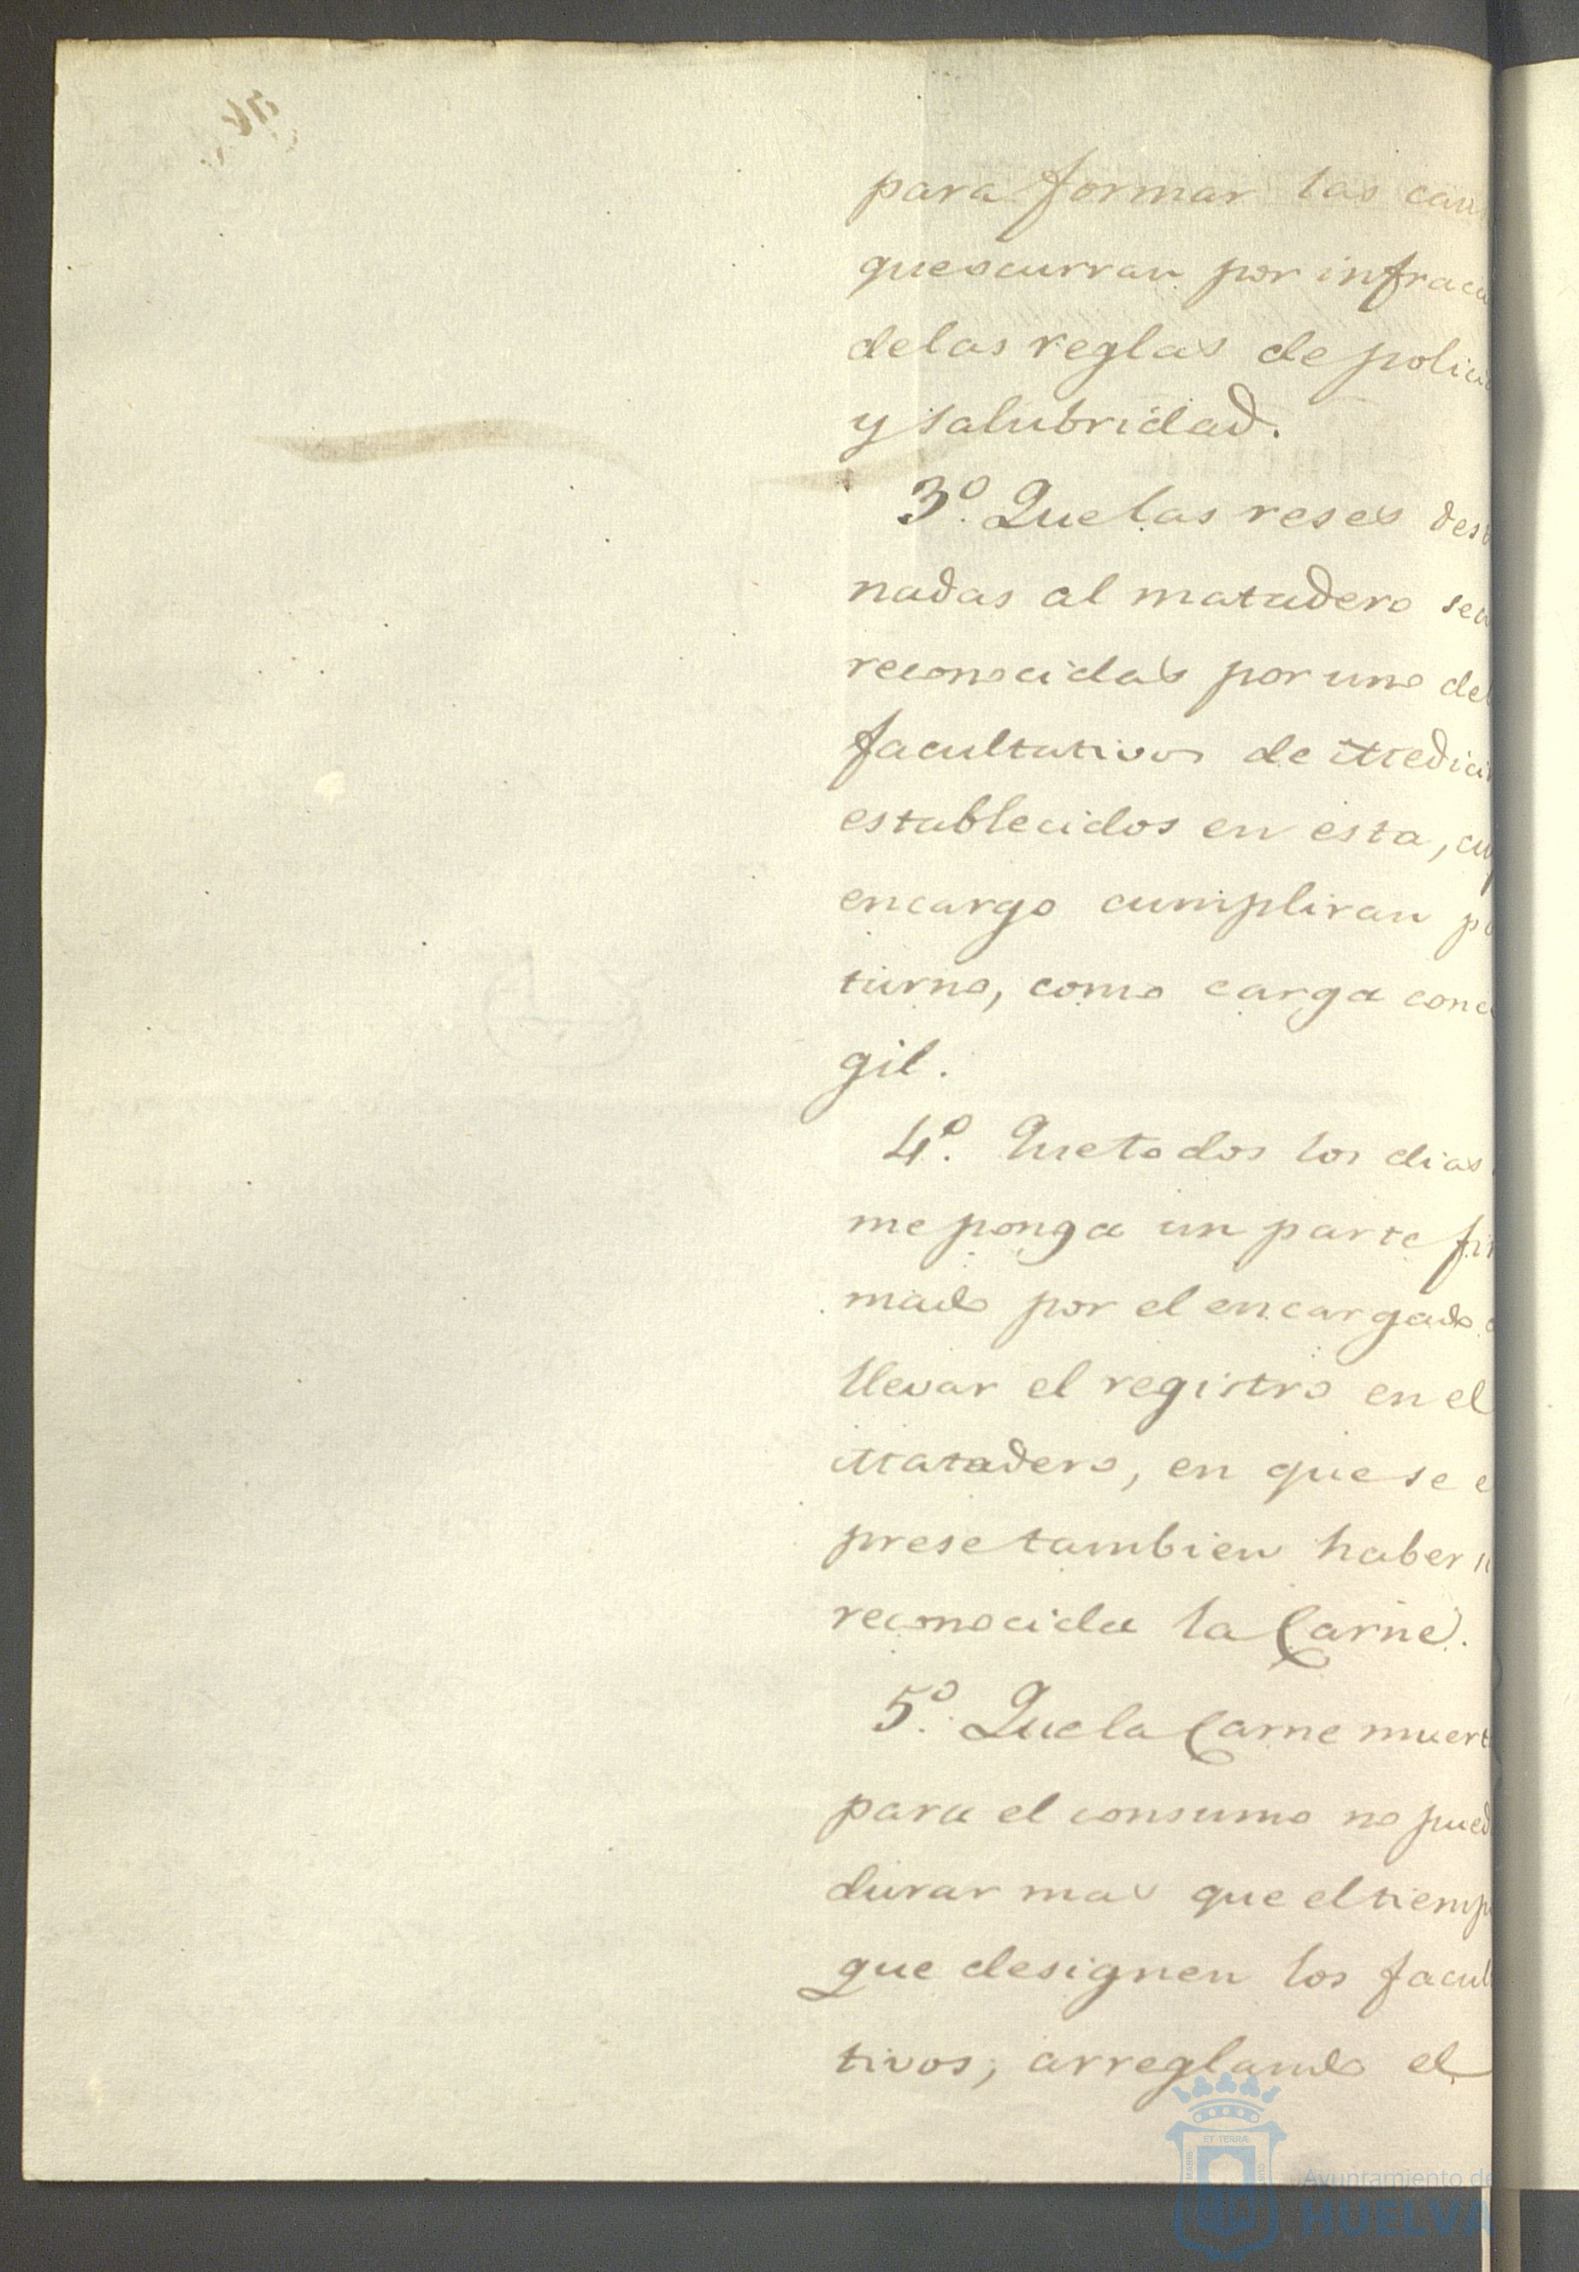 para formar las cau
que ocurran por infracci
de las reglas de polici
y salubridad.
3º. Que las reses dest
nadas al matadero sea
reconocidas por uno de
facultativos de Medici
establecidos en ésta, cuy
encargo cumpliran po
turno, como carga conc
gil.
4º. Que todos los dias
me ponga un parte fir
mado por el encargado
llevar el registro en el
Matadero, en que se e
prese tambien haber
reconocida la Carne.
5º. Que la Carne muert
para el consumo no pued
durar mas que el tiemp
que designen los facul
tivos, arreglando el
ET TERRÆ
MARIS
CUSTO
Ayuntamiento de
HUELVA